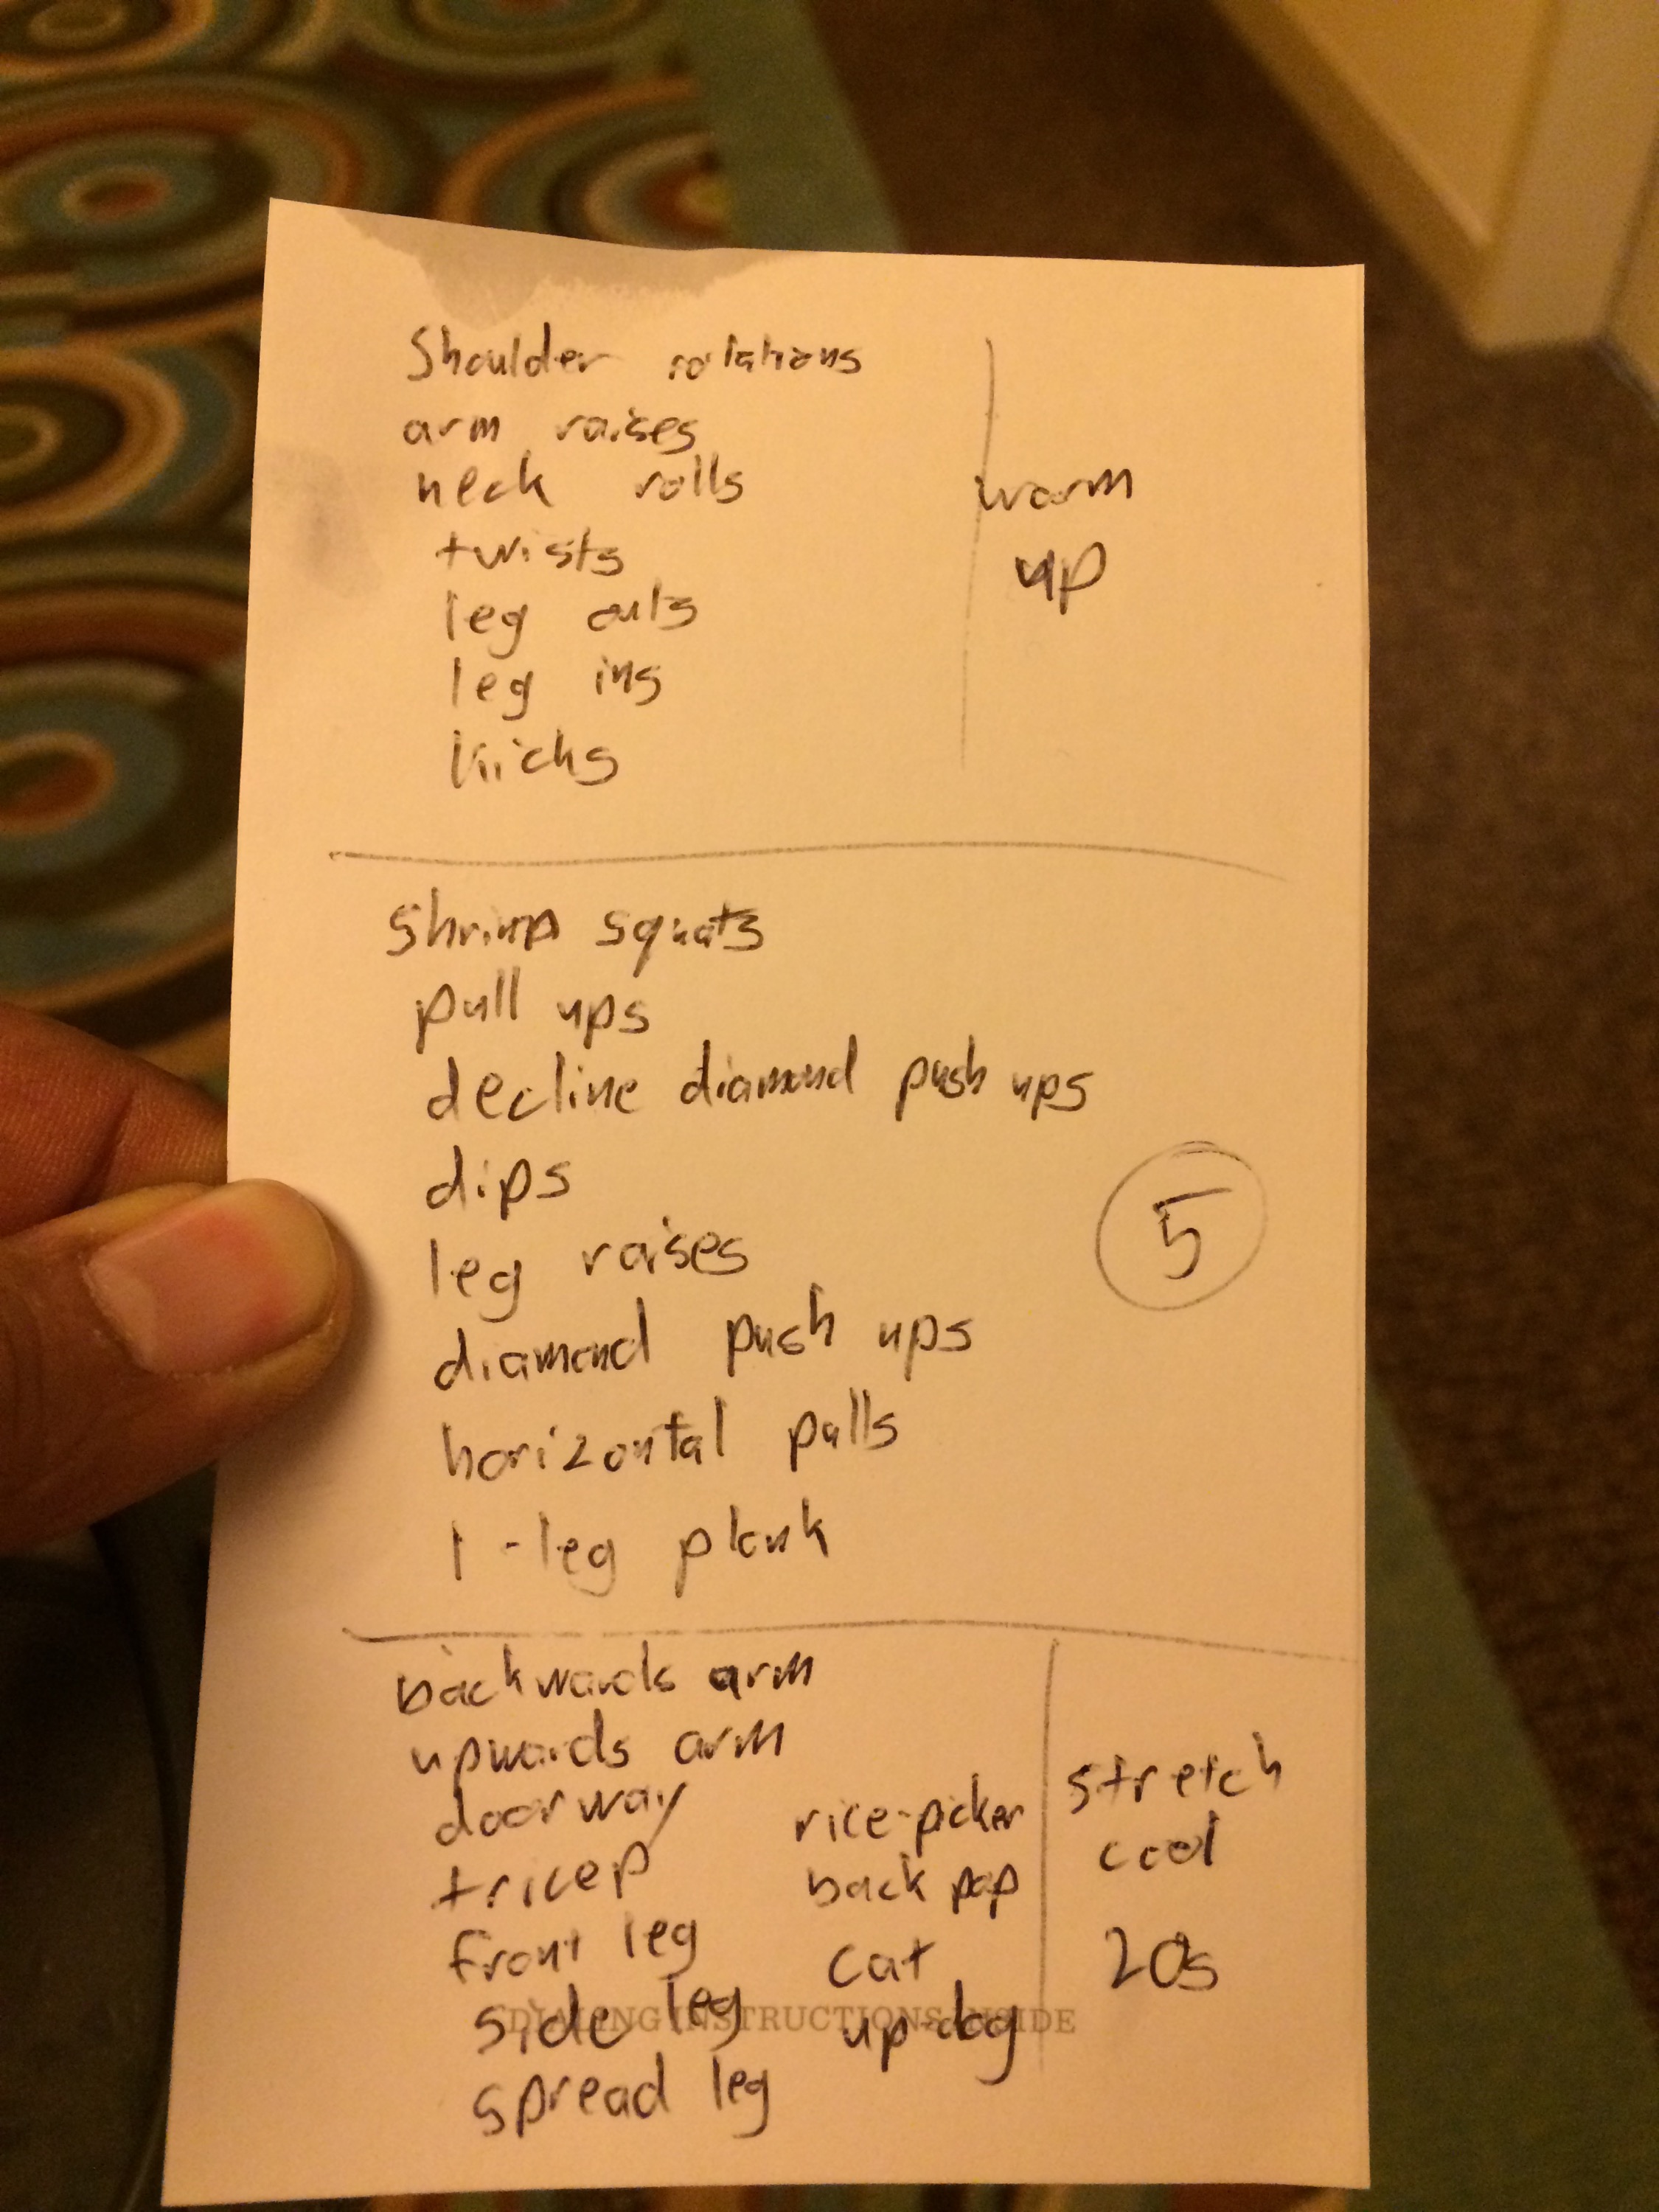 Shoulder rotations
arm raises
neck rolls
twists
leg outs
leg ins
kicks
warm
up
shrimp squats
pull ups
decline diamond push ups
dips
leg raises
diamond push ups
horizontal pulls
1-leg plank
5
backwards arm
upwards arm
doorway
tricep
front leg
side leg
spread leg
rice-picker
back pop
cat
up-dog
stretch
cool
20s
DIALING INSTRUCTIONS INSIDE